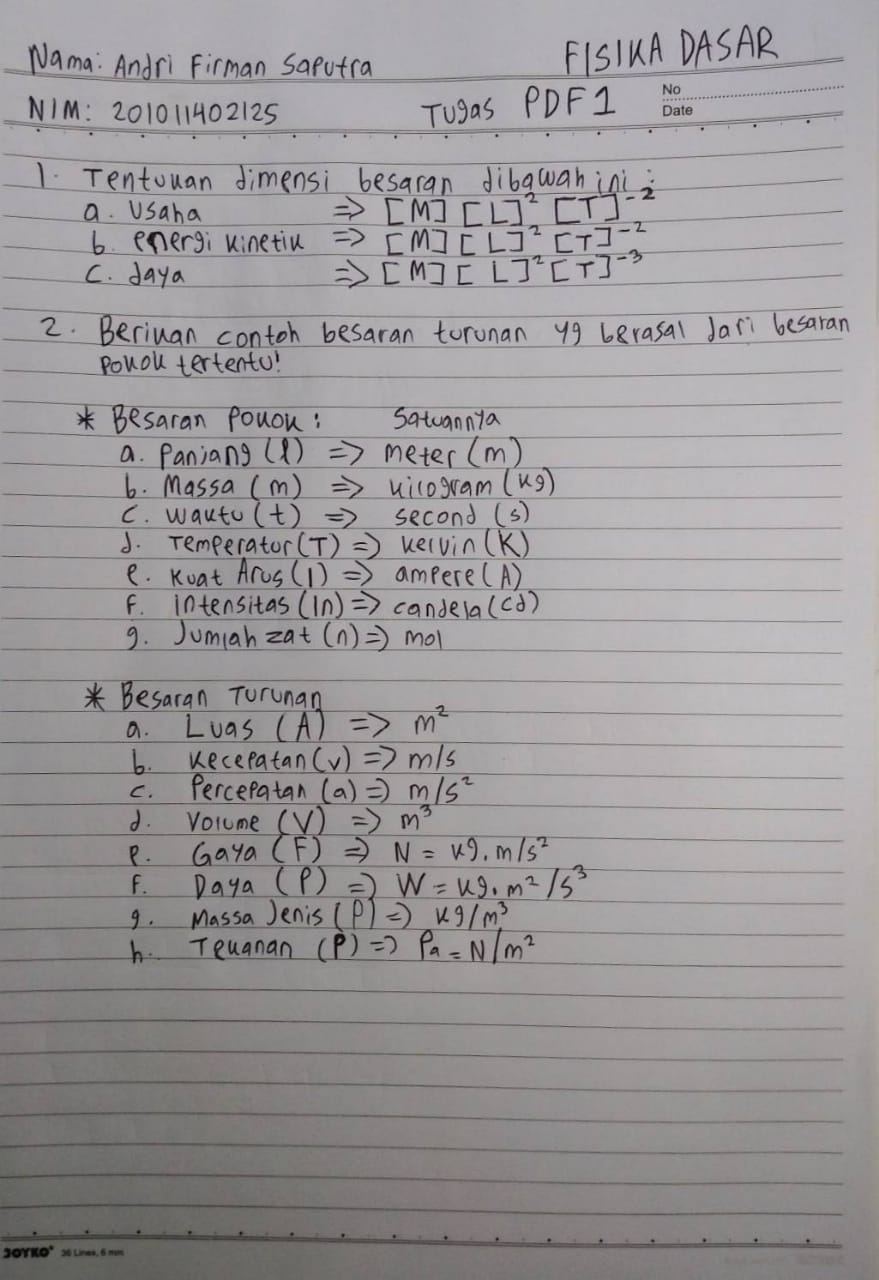 Nama: Andri Firman Saputra FISIKA DASAR
NIM: 201011402125 Tugas PDF1 No
Date
1. Tentukan dimensi besaran dibawah ini :
a. Usaha => [M] [L]² [T]⁻²
b. energi kinetik => [M] [L]² [T]⁻²
c. daya => [M] [L]² [T]⁻³
2. Berikan contoh besaran turunan yg berasal dari besaran
pokok tertentu!
* Besaran Pokok : Satuannya
a. Panjang (l) => meter (m)
b. Massa (m) => kilogram (kg)
c. waktu (t) => second (s)
d. Temperator (T) => kelvin (K)
e. Kuat Arus (I) => ampere (A)
f. intensitas (In) => candela (cd)
g. Jumlah zat (n) => mol
* Besaran Turunan
a. Luas (A) => m²
b. Kecepatan (v) => m/s
c. Percepatan (a) => m/s²
d. Volume (V) => m³
e. Gaya (F) => N = kg. m/s²
f. Daya (P) => W = kg. m²/s³
g. Massa Jenis (P) => kg/m³
h. Tekanan (P) => Pa = N/m²
JOYKO 36 Lines, 6 mm